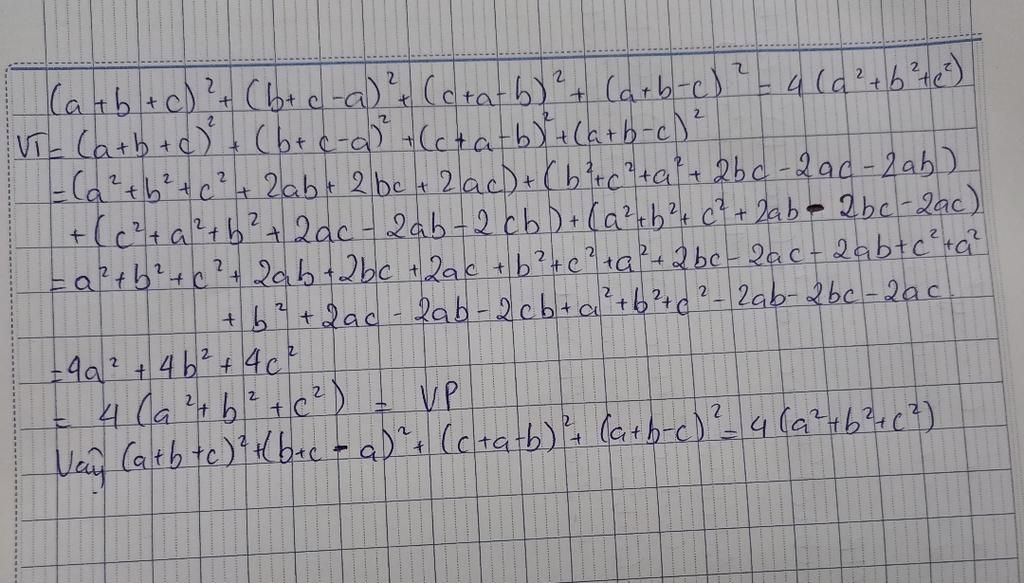 (a+b+c)² + (b+c-a)² + (c+a-b)² + (a+b-c)² = 4(a²+b²+c²)
VT = (a+b+c)² + (b+c-a)² + (c+a-b)² + (a+b-c)²
= (a²+b²+c²+2ab+2bc+2ac) + (b²+c²+a²+2bc-2ac-2ab)
+ (c²+a²+b²+2ac-2ab-2cb) + (a²+b²+c²+2ab-2bc-2ac)
= a²+b²+c²+2ab+2bc+2ac+b²+c²+a²+2bc-2ac-2ab+c²+a²
+ b²+2ac-2ab-2cb+a²+b²+c²-2ab-2bc-2ac
= 4a²+4b²+4c²
= 4(a²+b²+c²) = VP
Vậy (a+b+c)²+(b+c-a)²+(c+a-b)²+(a+b-c)²=4(a²+b²+c²)